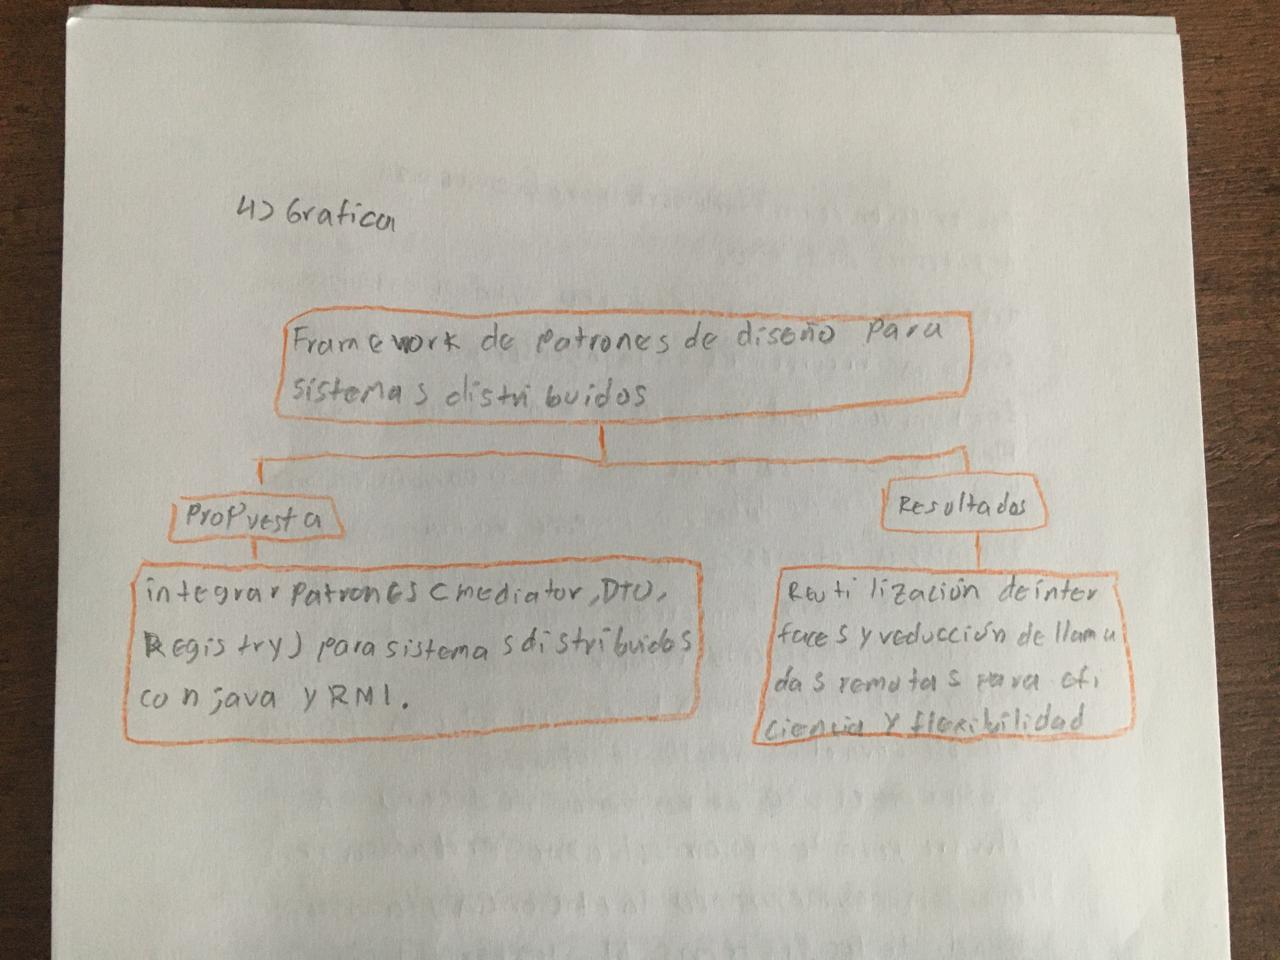 4) Grafica
Framework de patrones de diseño para
sistemas distribuidos
Propuesta
Resultados
integrar patrones (mediator, DTO,
Registry) para sistemas distribuidos
con java y RMI.
Reutilización de inter
faces y reducción de llama
das remotas para efi
ciencia y flexibilidad